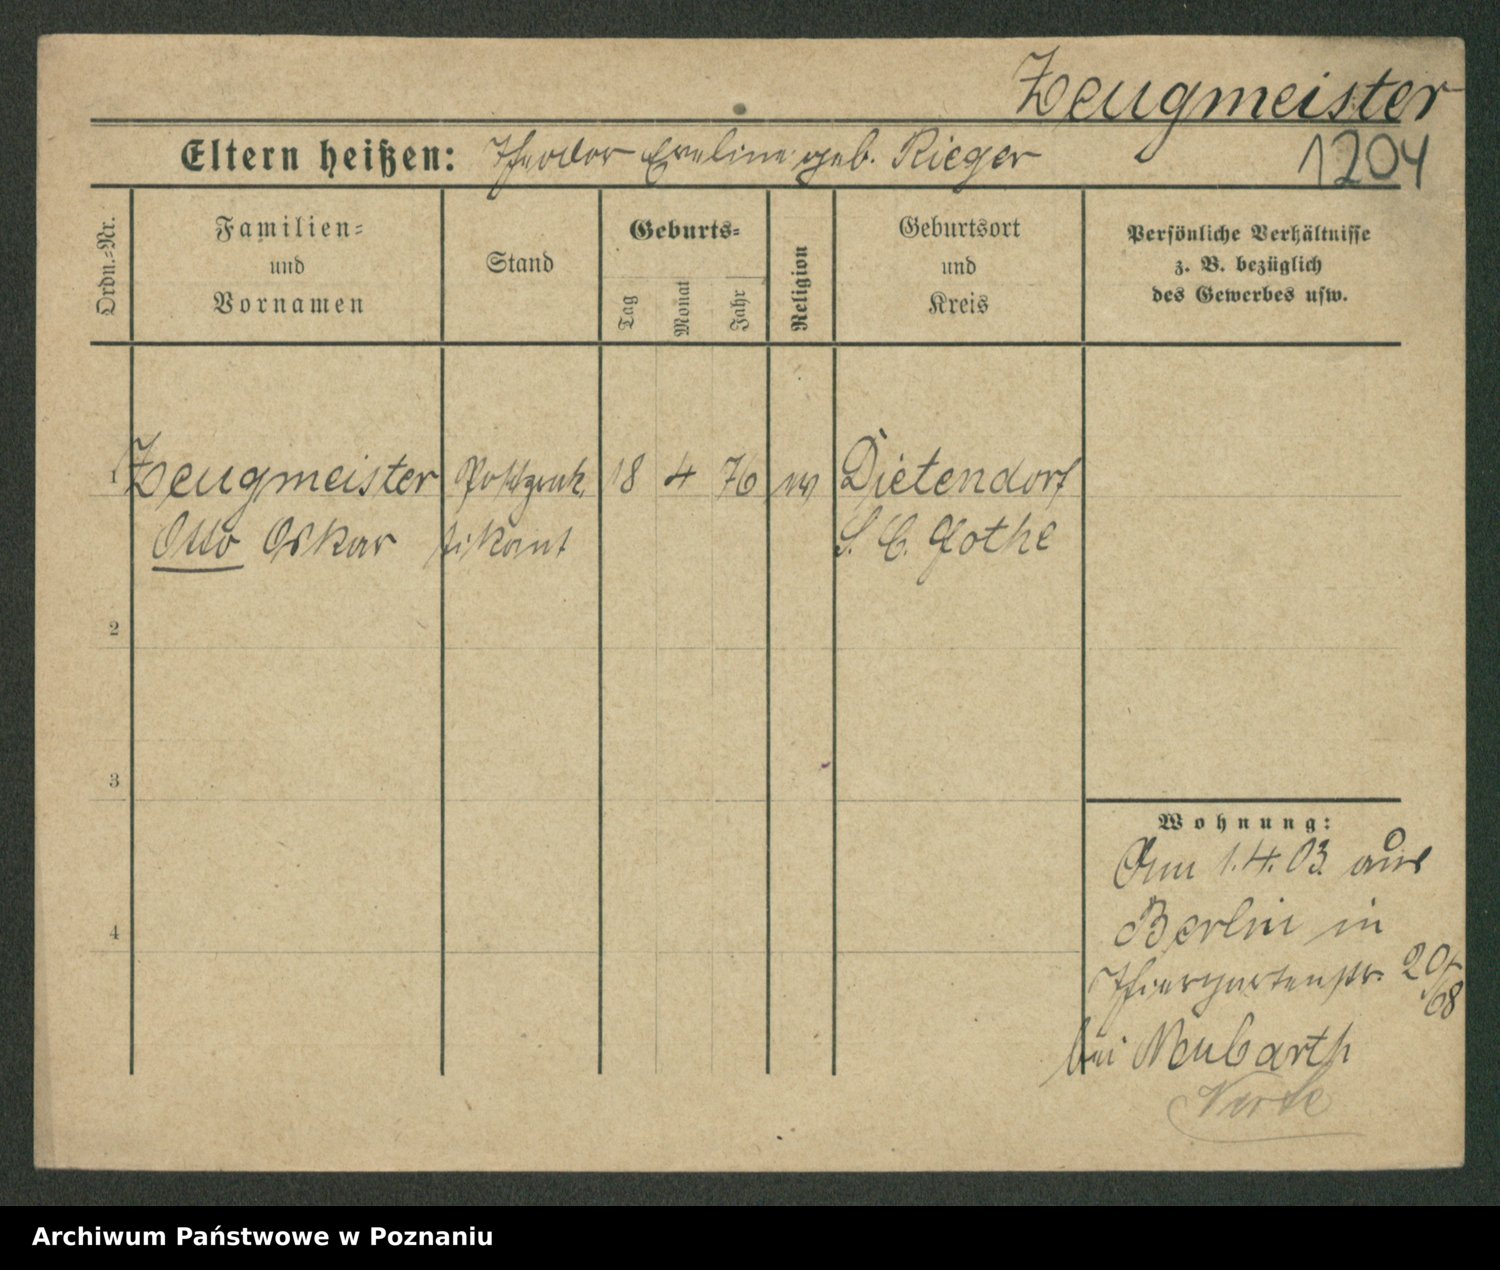 Zeugmeister
Eltern heißen: Theodor Eveline geb. Rieger
1204
Ordn.=Nr.
Familien=
und
Vornamen
Stand
Geburts=
Tag
Monat
Jahr
Religion
Geburtsort
und
Kreis
Persönliche Verhältnisse
z. B. bezüglich
des Gewerbes usw.
1 Zeugmeister Postprak 18 4 76 Dietendorf
Otto Oskar tikant S. C. Gotha
2
3
4
Wohnung:
Am 1.4.03 aus
Berlin in
Thiergartenstr. 20
bei Neubarth
Archiwum Państwowe w Poznaniu